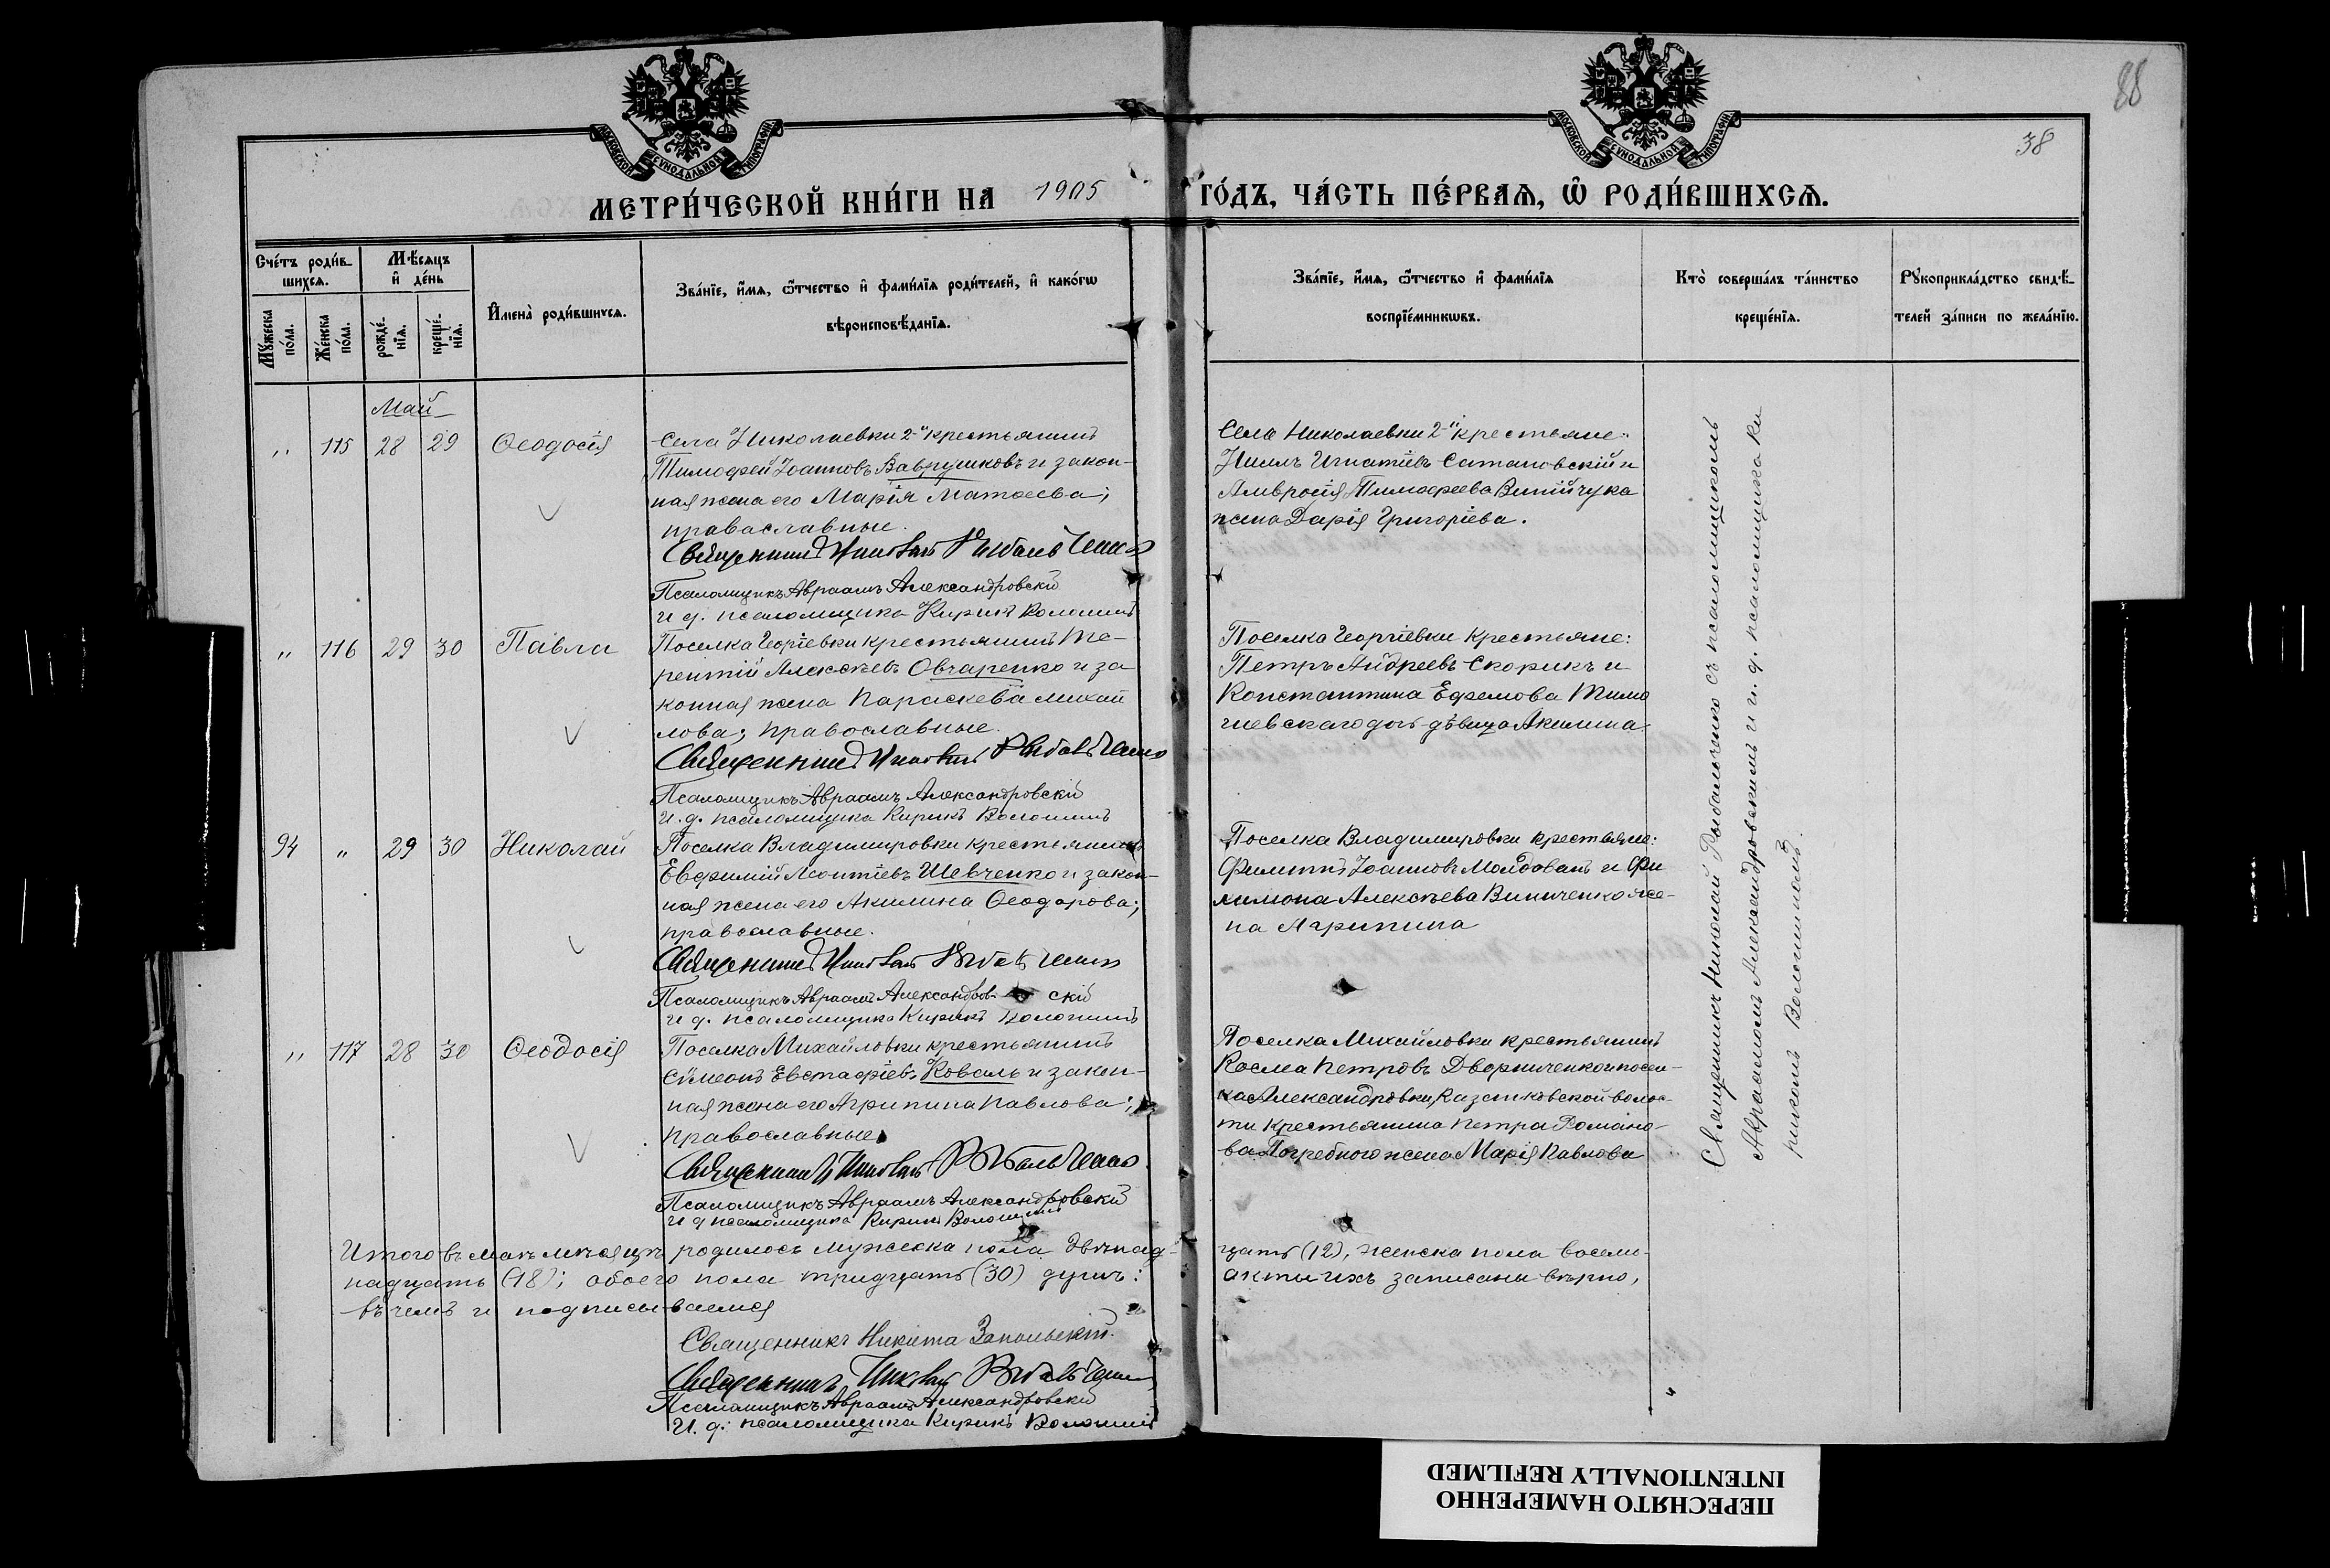 88
38
МОСКОВСКОЙ СѴНОДАЛЬНОЙ ТИПОГРАФІИ
МОСКОВСКОЙ СѴНОДАЛЬНОЙ ТИПОГРАФІИ
МЕТРИ́ЧЕСКОЙ КНИ́ГИ НА 1905 ГО́ДЪ, ЧА́СТЬ ПЕ́РВАѦ, Ѡ҆ РОДИ́ВШИХСѦ.
Счéтъ роди́в-
шихсѧ.
Мꙋ́жеска
по́ла.
Же́нска
по́ла.
Мѣ́сѧцъ
и҆ де́нь
рожде́-
нїѧ.
креще́-
нїѧ.
И҆мена̀ роди́вшихсѧ.
Зва́нїе, и҆́мѧ, ѻ҆́тчество и҆ фами́лїѧ роди́телей, и҆ како́гѡ
вѣроисповѣ́данїѧ.
Зва́нїе, и҆́мѧ, ѻ҆́тчество и҆ фами́лїѧ
воспрїе́мникѡвъ.
Кто̀ соверша́лъ та́инство
креще́нїѧ.
Рꙋкоприкла́дство свидѣ́-
телей за́писи по жела́нїю.
Май
" 115 28 29 Ѳеодосія
Села Николаевки 2-й крестьянинъ
Тимофей Іоанновъ Ваврушковъ и закон-
ная жена его Марія Матѳеева;
православные.
Священникъ Николай Рыбальченко
Псаломщикъ Авраамъ Александровскій
и д. псаломщика Кирикъ Волошинъ
Села Николаевки 2-й крестьяне:
Нилъ Игнатіевъ Сатановскій и
Амвросія Тимофеева Винійчука
жена Дарія Григоріева.
" 116 29 30 Павла
Поселка Георгіевки крестьянинъ Те-
рентій Алексѣевъ Овчаренко и за
конная жена Параскева Михай
лова; православные.
Священникъ Николай Рыбальченко
Псаломщикъ Авраамъ Александровскій
и. д. псаломщика Кирикъ Волошинъ
Поселка Георгіевки крестьяне:
Петръ Андреевъ Скорикъ и
Константина Ефремова Тимо
гиевскаго дочь дѣвица Акилина.
94 " 29 30 Николай
Поселка Владимировки крестьянинъ
Евфимій Леонтіевъ Шевченко и закон-
ная жена его Акилина Ѳеодорова;
православные.
Священникъ Николай Рыбальченко
Псаломщикъ Авраамъ Александровскій
и д. псаломщика Кирикъ Волошинъ
Поселка Владимировки крестьяне:
Филиппъ Іоанновъ Молдованъ и Фи
лимона Алексѣева Виниченко же-
на Агрипина
" 117 28 30 Ѳеодосія
Поселка Михайловки крестьянинъ
Сѵмеонъ Евстафіевъ Коваль и закон-
ная жена его Агрипина Павлова;
православные.
Священникъ Николай Рыбальченко
Псаломщикъ Авраамъ Александровскій
и д псаломщика Кирикъ Волошинъ
Поселка Михайловки крестьянинъ
Косма Петровъ Дворниченко и посел-
ка Александровки, волос-
ти крестьянина Петра Романо-
ва Погребного жена Марія Павлова
Священникъ Николай Рыбальченко съ псаломщикомъ
Авраамомъ Александровскимъ и и. д. псаломщика Ки
рикомъ Волошиномъ.
Итого въ маѣ мѣсяцѣ родилось мужеска пола двѣнад-
цать (12), женска пола восем-
надцать (18); обоего пола тридцать (30) душъ:
акты ихъ записаны вѣрно,
въ чемъ и подписываемся
Священникъ Никита Запольскій.
Священникъ Николай Рыбальченко
Псаломщикъ Авраамъ Александровскій
И. д. псаломщика Кирикъ Волошинъ
ПЕРЕСНЯТО НАМЕРЕННО
INTENTIONALLY REFILMED